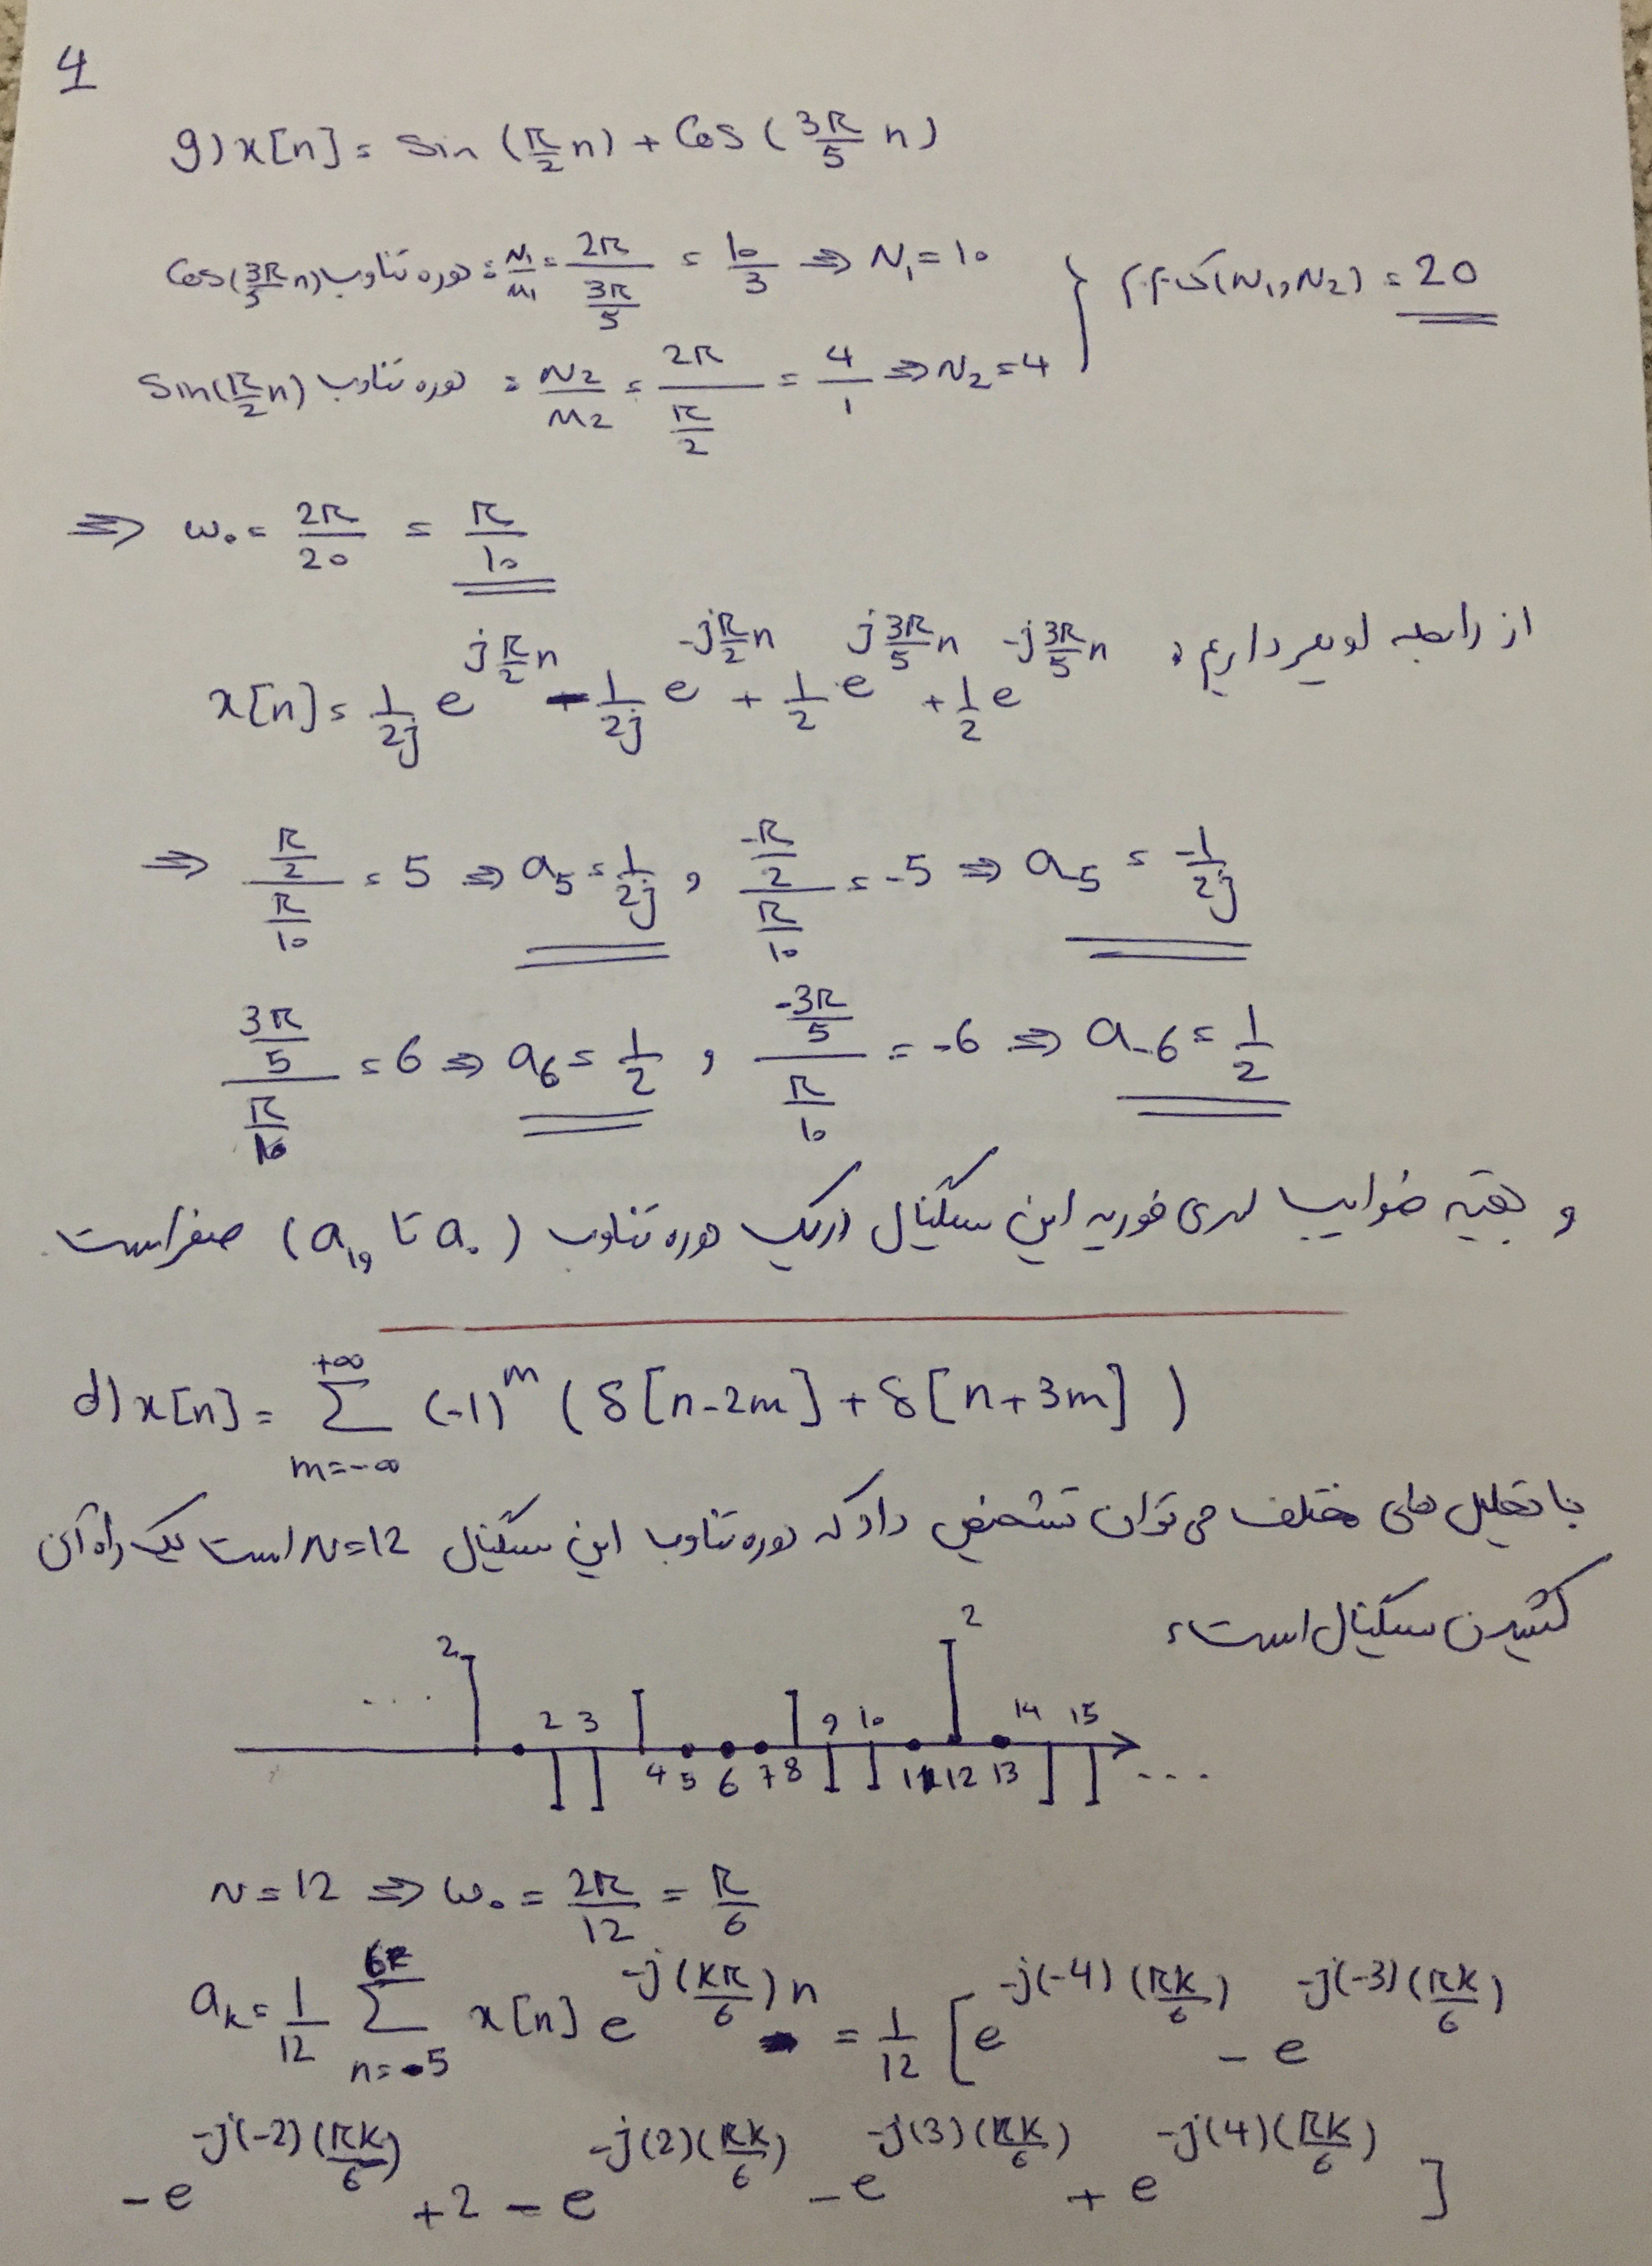 4
g) x[n] = sin (π/2 n) + cos (3π/5 n)
cos(3π/5 n) دوره تناوب = N₁/M₁ = 2π/(3π/5) = 10/3 ⇒ N₁ = 10
sin(π/2 n) دوره تناوب = N₂/M₂ = 2π/(π/2) = 4/1 ⇒ N₂ = 4
} ک.م.م(N₁,N₂) = 20
⇒ ω₀ = 2π/20 = π/10
از رابطه اویلر داریم:
x[n] = 1/2j e^{jπ/2 n} - 1/2j e^{-jπ/2 n} + 1/2 e^{j3π/5 n} + 1/2 e^{-j3π/5 n}
⇒ (π/2)/(π/10) = 5 ⇒ a₅ = 1/2j , (-π/2)/(π/10) = -5 ⇒ a₅ = -1/2j
(3π/5)/(π/10) = 6 ⇒ a₆ = 1/2 , (-3π/5)/(π/10) = -6 ⇒ a₋₆ = 1/2
و بقیه ضرایب سری فوریه این سیگنال در یک دوره تناوب (a₀ تا a₁₉) صفر است
d) x[n] = Σ_{m=-∞}^{+∞} (-1)^m (δ[n-2m] + δ[n+3m])
با تحلیل های مختلف می توان تشخیص داد که دوره تناوب این سیگنال N=12 است یک راه آن
کشیدن سیگنال است:
2 2
... 2 3 9 10 14 15
4 5 6 7 8 11 12 13 ...
N = 12 ⇒ ω₀ = 2π/12 = π/6
a_k = 1/12 Σ_{n=-5}^{6} x[n] e^{-j(kπ/6)n} = 1/12 [e^{-j(-4)(πk/6)} - e^{-j(-3)(πk/6)}
- e^{-j(-2)(πk/6)} + 2 - e^{-j(2)(πk/6)} - e^{-j(3)(πk/6)} + e^{-j(4)(πk/6)} ]